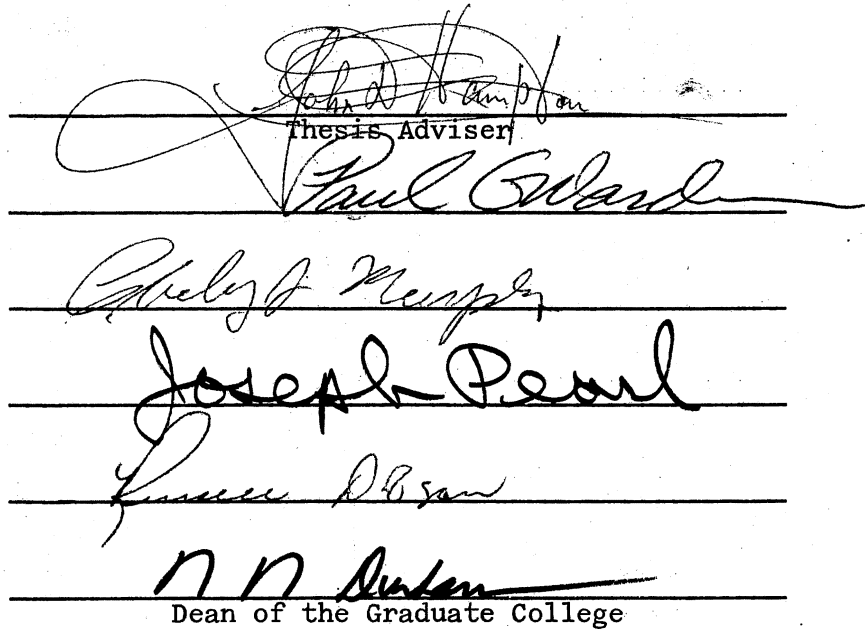 John D Hampton
Thesis Adviser
Paul G Warden
J Murphy
Joseph Pearl
N N Durham
Dean of the Graduate College